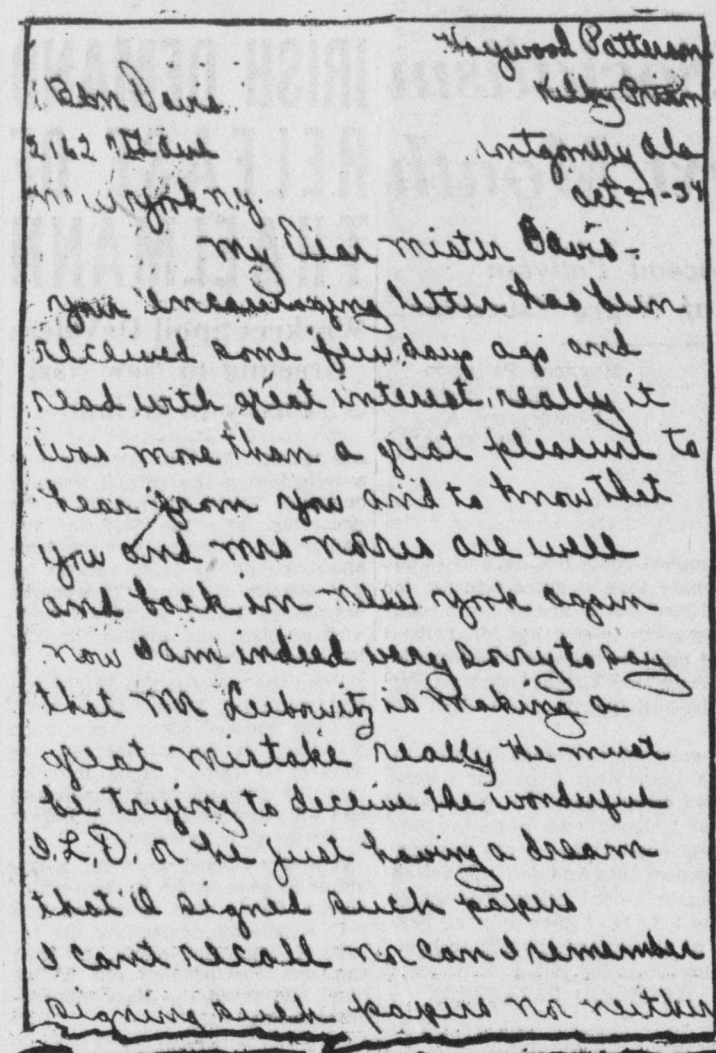 Haywood Patterson
Ben Davis. Kilby Prison
2162 7th Ave ontgomery Ala
New york ny. Oct 27-34
My Dear mister Davis-
your encouraging letter has been
received some few days ago and
read with great interest. really it
was more than a great pleasure to
hear from you and to know that
you and mrs norris are well
and back in new york again
now I am indeed very sorry to say
that Mr Leibowitz is making a
great mistake really he must
be trying to deceive the wonderful
I.L.D. or he just having a dream
that I signed such papers
I cant recall nor can I remember
signing such papers nor neither